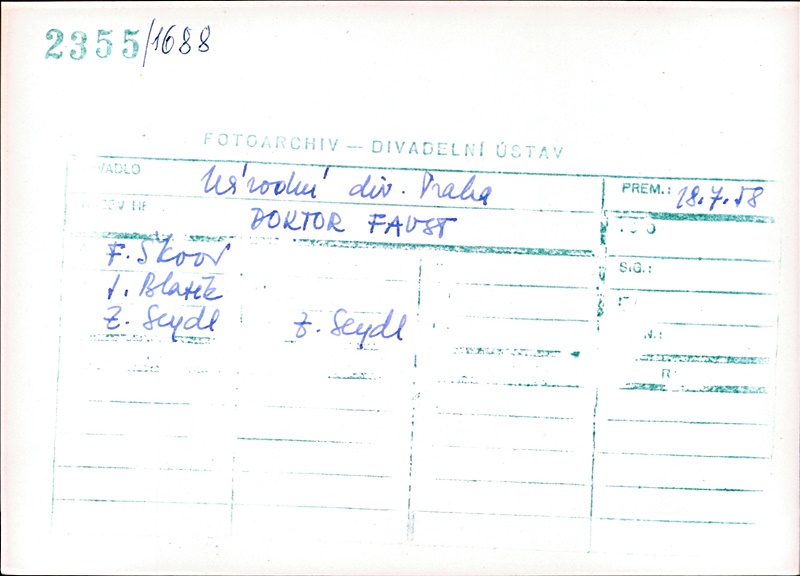 2355/1688
FOTOARCHIV — DIVADELNÍ ÚSTAV
VADLO Národní div. Praha PREM.: 18.7.58
DOKTOR FAUST
F. Škvor SIG.:
J. Blažek
Z. Seydl Z. Seydl